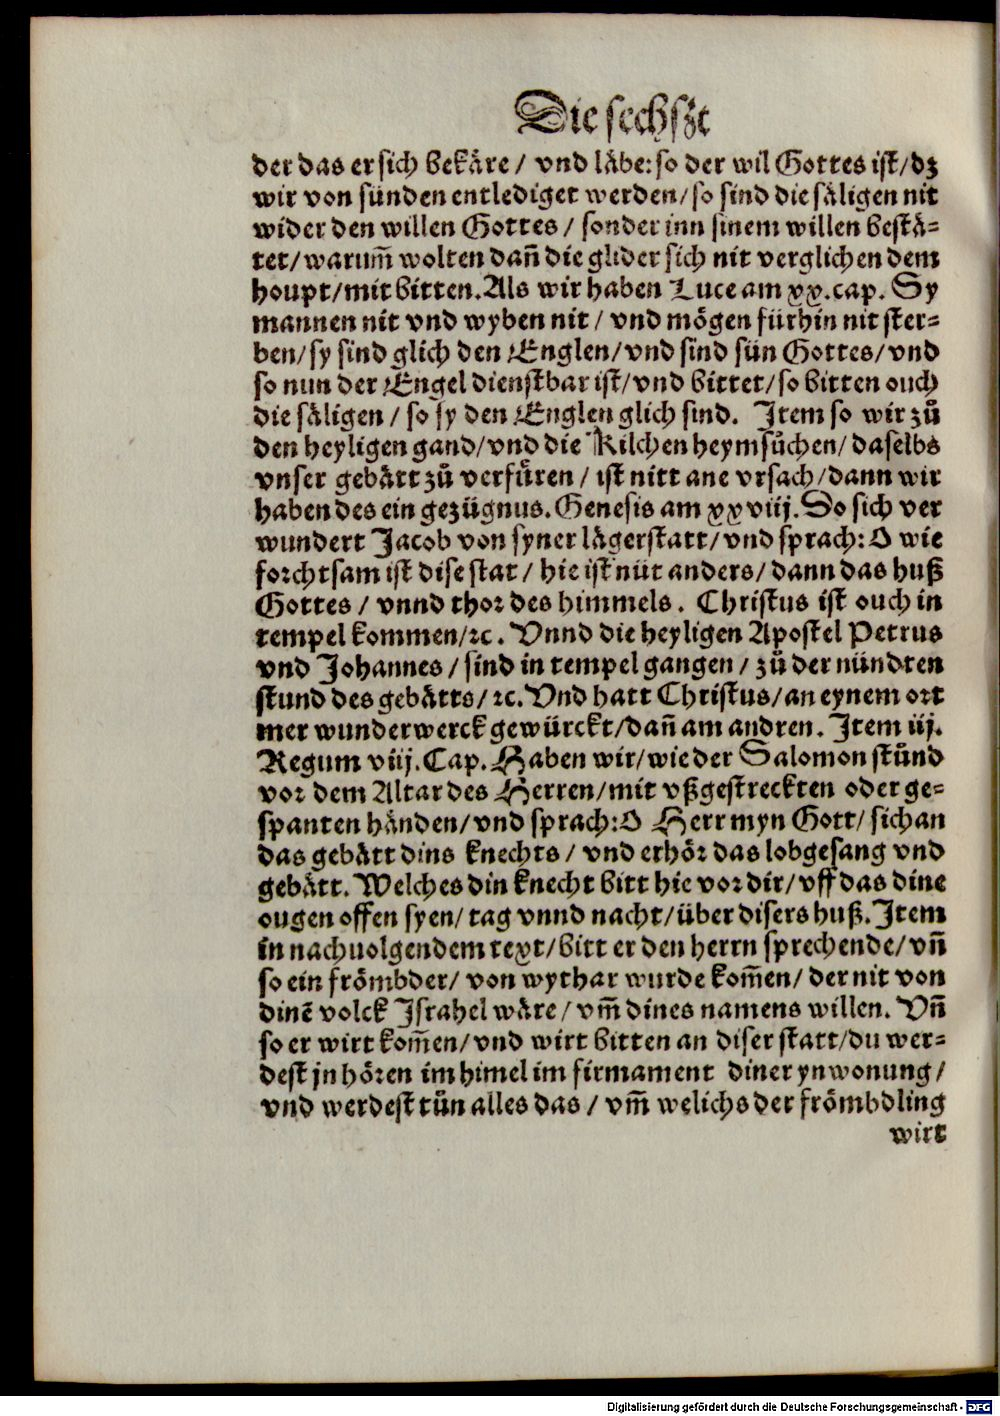 Die sechszt
der das er sich bekäre / vnd läbe: so der wil Gottes ist / dz
wir von sünden entlediget werden / so sind die säligen nit
wider den willen Gottes / sonder inn sinem willen bestä-
tet / warum̄ wolten dañ die glider sich nit verglichen dem
houpt / mit bitten. Als wir haben Luce am xx. cap. Sy
mannen nit vnd wyben nit / vnd mögen fürhin nit ster-
ben / sy sind glich den Englen / vnd sind sün Gottes / vnd
so nun der Engel dienstbar ist / vnd bittet / so bitten ouch
die säligen / so sy den Englen glich sind. Item so wir zů
den heyligen gand / vnd die Kilchen heymsůchen / daselbs
vnser gebätt zů verfüren / ist nitt ane vrsach / dann wir
haben des ein gezügnus. Genesis am xxviij. So sich ver
wundert Jacob von syner lägerstatt / vnd sprach: O wie
forchtsam ist dise stat / hie ist nüt anders / dann das huß
Gottes / vnnd thor des himmels. Christus ist ouch in
tempel kommen / ꝛc. Vnnd die heyligen Apostel Petrus
vnd Johannes / sind in tempel gangen / zů der nündten
stund des gebätts / ꝛc. Vnd hatt Christus / an eynem ort
mer wunderwerck gewürckt / dañ am andren. Item iij.
Regum viij. Cap. Haben wir / wie der Salomon stůnd
vor dem Altar des Herren / mit vßgestreckten oder ge-
spanten händen / vnd sprach: O Herr myn Gott / sich an
das gebätt dins knechts / vnd erhör das lobgesang vnd
gebätt. Welches din knecht bitt hie vor dir / vff das dine
ougen offen syen / tag vnnd nacht / über disers huß. Item
in nachuolgendem text / bitt er den herrn sprechende / vñ
so ein frömbder / von wythar wurde kom̄en / der nit von
dinē volck Israhel wäre / vm̄ dines namens willen. Vñ
so er wirt kom̄en / vnd wirt bitten an diser statt / du wer-
dest jn hören im himel im firmament diner ynwonung /
vnd werdest tůn alles das / vm̄ welichs der frömbdling
wirt
Digitalisierung gefördert durch die Deutsche Forschungsgemeinschaft - DFG